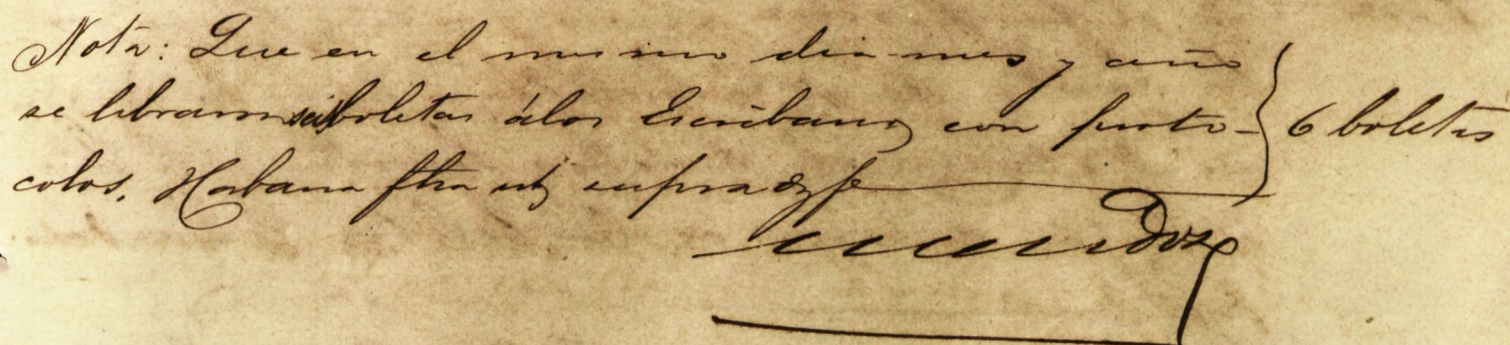 Nota: Que en el mismo dia mes y año
se libraron seis boletas á los Escribanos con proto-
colos. Habana fha ut supra doy fe
6 boletas
Mendoza